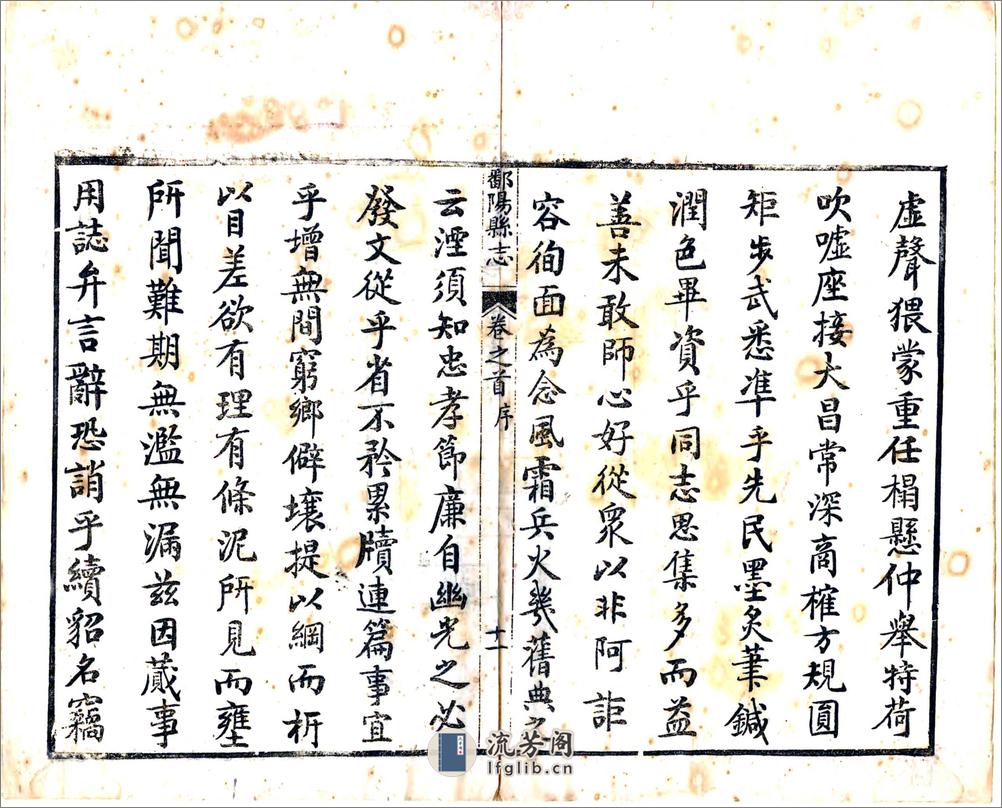 虛聲猥蒙重任榻懸仲舉特荷
吹噓座接大昌常深商榷方規圓
矩步武悉準乎先民墨炙筆鍼
潤色畢資乎同志思集多而益
善未敢師心好從眾以非阿詎
容徇面為念風霜兵火幾舊典之
鄱陽縣志 卷之首 序 十一
云湮須知忠孝節廉自幽光之必
發文從乎省不矜累牘連篇事宜
乎增無間窮鄉僻壤提以綱而析
以目差欲有理有條泥所見而壅
所聞難期無濫無漏茲因蕆事
用誌弁言辭恐誚乎續貂名竊
流芳阁
lfglib.cn